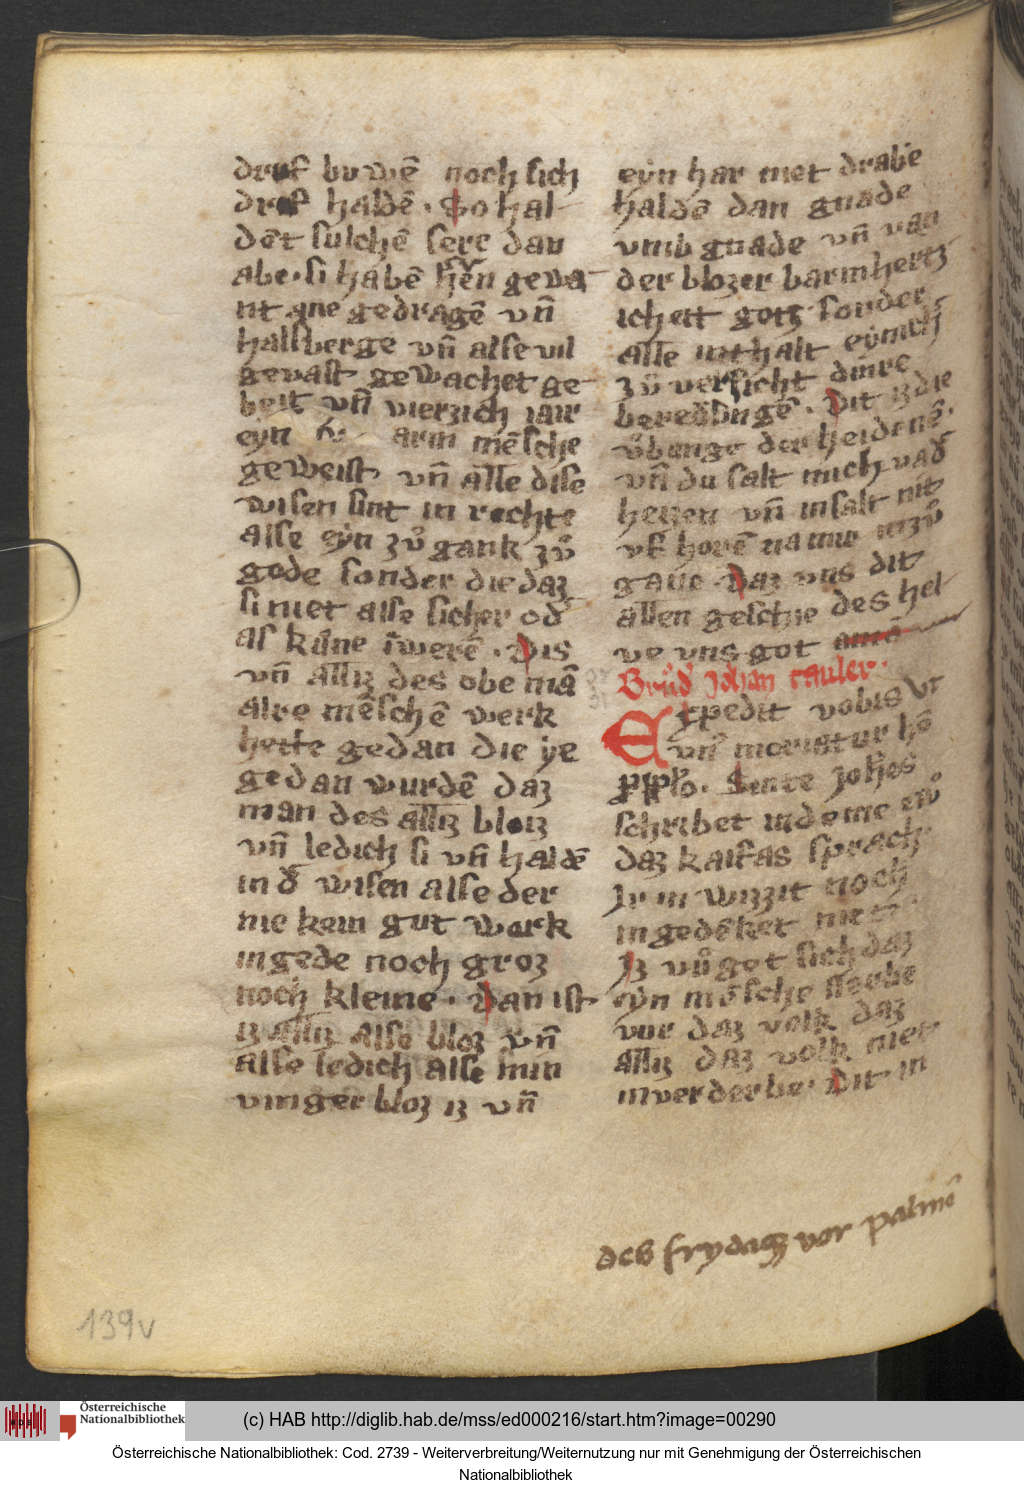 druf buwē noch sich
druf haldē. So hal
dēt sulchē sere dan
abe. si habē h'en gewa
nt ane gedragē vn̄
halsberge vn̄ alse vil
gevast gewachet ge
beit vn̄ vierzich iair
eyn arm mēsche
geweist vn̄ alle dise
wisen sint in rechte
alse eyn zůgank zů
gode sonder die daz
si niet alse sicher od'
as kůne iwerē. Dis
vn̄ alliz des obe mā
alre mēschē werk
hette gedan die ye
gedan wurdē daz
man des alliz bloiz
vn̄ ledich si vn̄ haldē
in d' wisen alse der
nie kein gut werk
ingede noch groz
noch kleine. Dan ist
iz alliz alse bloz vn̄
alse ledich alse min
vinger bloz iz vn̄
eyn har niet drabe
haldē dan gnade
vmb gnade vn̄ van
der blozer barmhertz
icheit gotz sonder
alle inthalt eynich
zůversicht dinre
beredūgē. Dit iz die
ůbunge der heidenē.
vn̄ du salt mich vad'
heizen vn̄ insalt nit
vf horē na mir inzů
gane. Daz vns dit
allen geschie des hel
ve vns got amē
Brůd' Johan tauler.
Expedit vobis vt
vn' moriatur hō
pro pplo. Sente Johēs
schribet indeme ewā
daz kaifas sprach
Ir in wizzit noch
ingedēket niet
Iz vůget sich daz
eyn mēsche sterbe
vur daz volk daz
alliz daz volk niet
inverderbe. Dit in
des frydagz vor palmē
139v
Österreichische
Nationalbibliothek
(c) HAB http://diglib.hab.de/mss/ed000216/start.htm?image=00290
Österreichische Nationalbibliothek: Cod. 2739 - Weiterverbreitung/Weiternutzung nur mit Genehmigung der Österreichischen
Nationalbibliothek